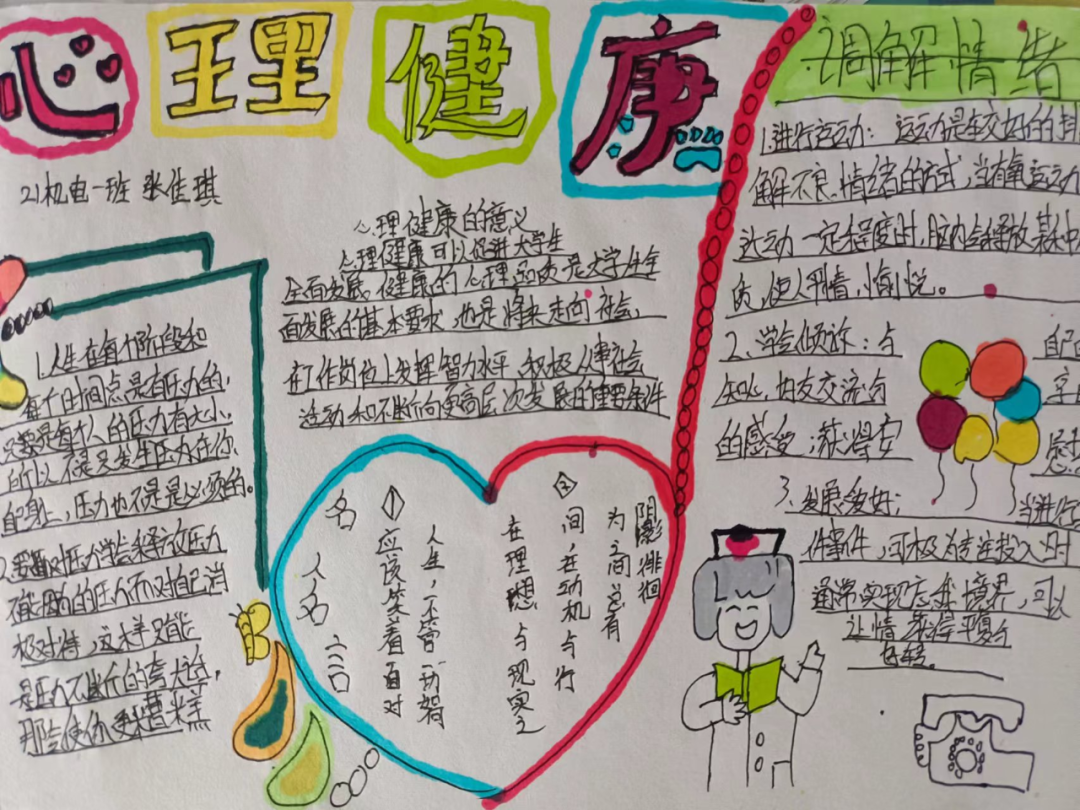 心理健康
21机电一班 张佳琪
心理健康的意义
心理健康可以促进大学生
全面发展健康的心理品质是大学生全
面发展的基本要求,也是将来走向社会,
在工作岗位上发挥智力水平、积极从事社会
活动和不断向更高层次发展的重要条件
1.人生在每个阶段和
每个时间点是有压力的,
只是每个人的压力有大小,
所以不是只发生压力在你
自己身上,压力也不是是必须的。
压力学会释放压力
不能因为的压力而对自己消
极对待,这样只能
是压力不断的夸大,
那会使你更糟糕
名人名言
①
人生,不管
应该笑着面对
②
在理想与现实之
间,在动机与行
为之间总有
阴影徘徊
调解情绪
1.进行运动:运动是较好的排
解不良情绪的方式,当有氧运动
达动一定程度时,脑内会释放某种
质,使人平静,愉悦。
2、学会倾诉:与 自己
知心朋友交流与 享
的感受,获得安 慰
3、发展爱好: 当进行
件事件,可极为专注投入时
通常实现忘我境界,可以
让情绪获得平复与
好转。